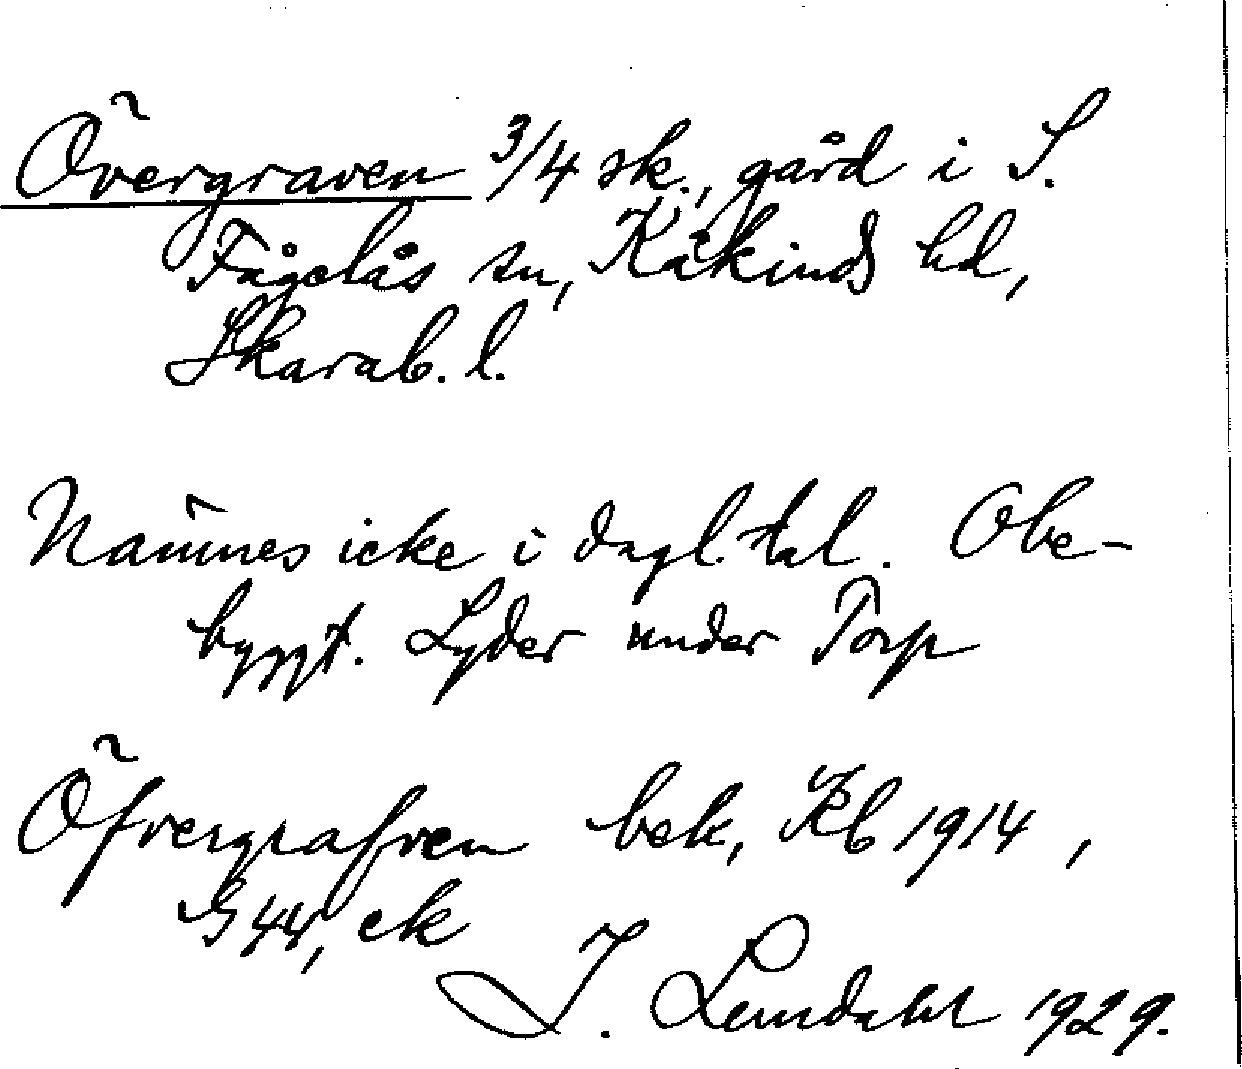 Övergraven 3/4 sk., gård i S.
Fågelås sn, Kåkinds hd,
Skarab. l.
Nämnes icke i dagl. tal. Obe-
byggt. Lyder under Torp
Öfvergrafven bek, Kb 1914,
G 44, ek
J. Lemdahl 1929.